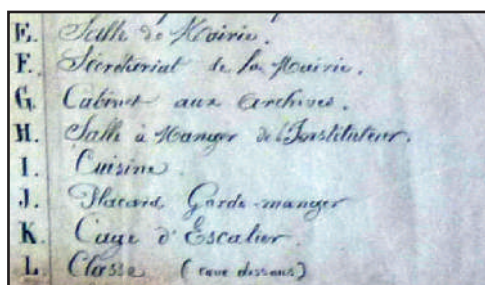 E. Salle de Mairie.
F. Sécrétariat de la Mairie.
G. Cabinet aux Archives.
H. Salle à Manger de l'Instituteur.
I. Cuisine.
J. Placard Garde-manger
K. Cage d'Escalier.
L. Classe (cave dessous)